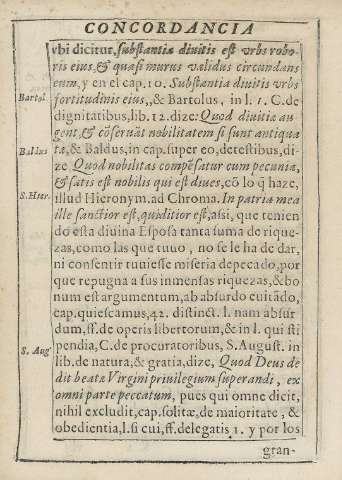 CONCORDANCIA
vbi dicitur, substantia diuitis est vrbs robo-
ris eius, & quasi murus validus circundans
eum, y en el cap. 10. Substantia diuitis vrbs
Bartol.
fortitudinis eius,, & Bartolus, in l. 1. C. de
dignitatibus, lib. 12. dize: Quod diuitiæ au-
gent, & cõseruãt nobilitatem si sunt antiqua
Baldus
tæ, & Baldus, in cap. super eo, de testibus, di-
ze Quod nobilitas compẽsatur cum pecuniæ,
& satis est nobilis qui est diues, cõ lo q̃ haze,
S. Hier.
illud Hieronym. ad Chroma. In patria mea
ille sanctior est, qui ditior est, assi, que tenien
do esta diuina Esposa tanta suma de rique-
zas, como las que tuuo, no se le ha de dar,
ni consentir tuuiesse miseria de pecado, por
que repugna a sus inmensas riquezas, & bo
num est argumentum, ab absurdo euitãdo,
cap. quiescamus, 42. distinct. l. nam absur
dum, ff. de operis libertorum, & in l. qui sti
pendia, C. de procuratoribus, S. August. in
S. Aug
lib. de natura, & gratia, dize, Quod Deus de
dit beatæ Virgini priuilegium superandi, ex
omni parte peccatum, pues qui omne dicit,
nihil excludit, cap. solitæ, de maioritate, &
obedientia, l. si cui, ff. de legatis 1. y por los
gran-